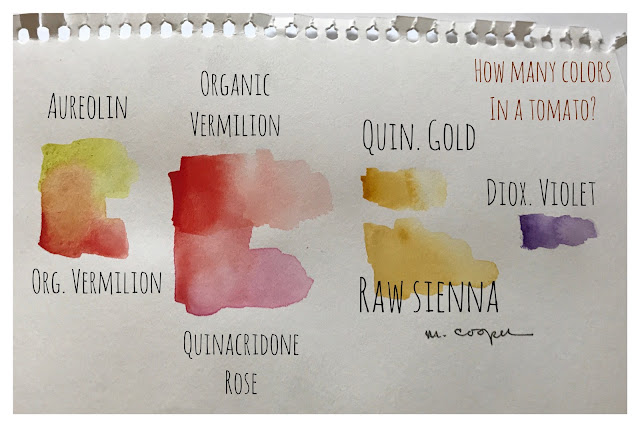 How many colors
In a tomato?
Aureolin
Organic
Vermilion
Quin. Gold
Diox. Violet
Org. Vermilion
Raw sienna
m. cooper
Quinacridone
Rose